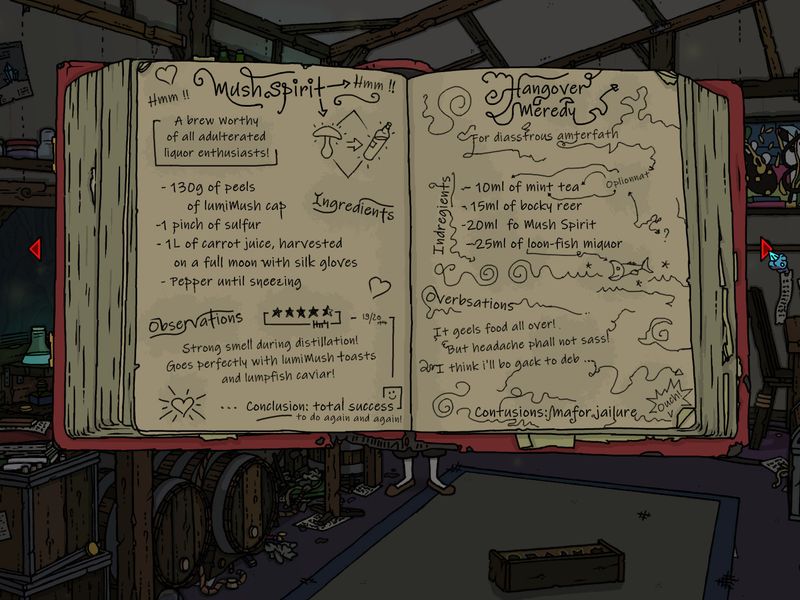 Mush Spirit → Hmm !!
Hmm !!
A brew worthy
of all adulterated
liquor enthusiasts!
- 130g of peels
of lumiMush cap
-1 pinch of sulfur
- 1L of carrot juice, harvested
on a full moon with silk gloves
- Pepper until sneezing
Ingredients
Observations
- 19/20
Strong smell during distillation!
Goes perfectly with lumiMush toasts
and lumpfish caviar!
... Conclusion: total success
to do again and again!
Hangover
Meredy
For diasstrous amterfath
Indregients
- 10ml of mint tea
Oplionnat
- 15ml of bocky reer
-20ml fo Mush Spirit
-25ml of loon-fish miquor
?
Overbsations
It geels food all over!
But headache phall not sass!
I think i'll bo gack to deb ...
Ouch!
Contusions: mafor jailure